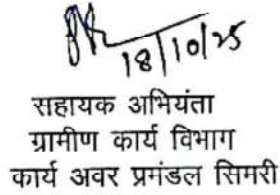 18/10/25
सहायक अभियंता
ग्रामीण कार्य विभाग
कार्य अवर प्रमंडल सिमरी